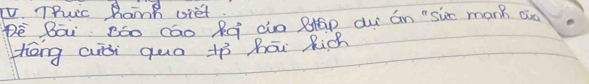 IV. Thực hành viết
Đề bài: báo cáo kq của btập dự án "sức mạnh của
tiếng cười qua tp hài kịch